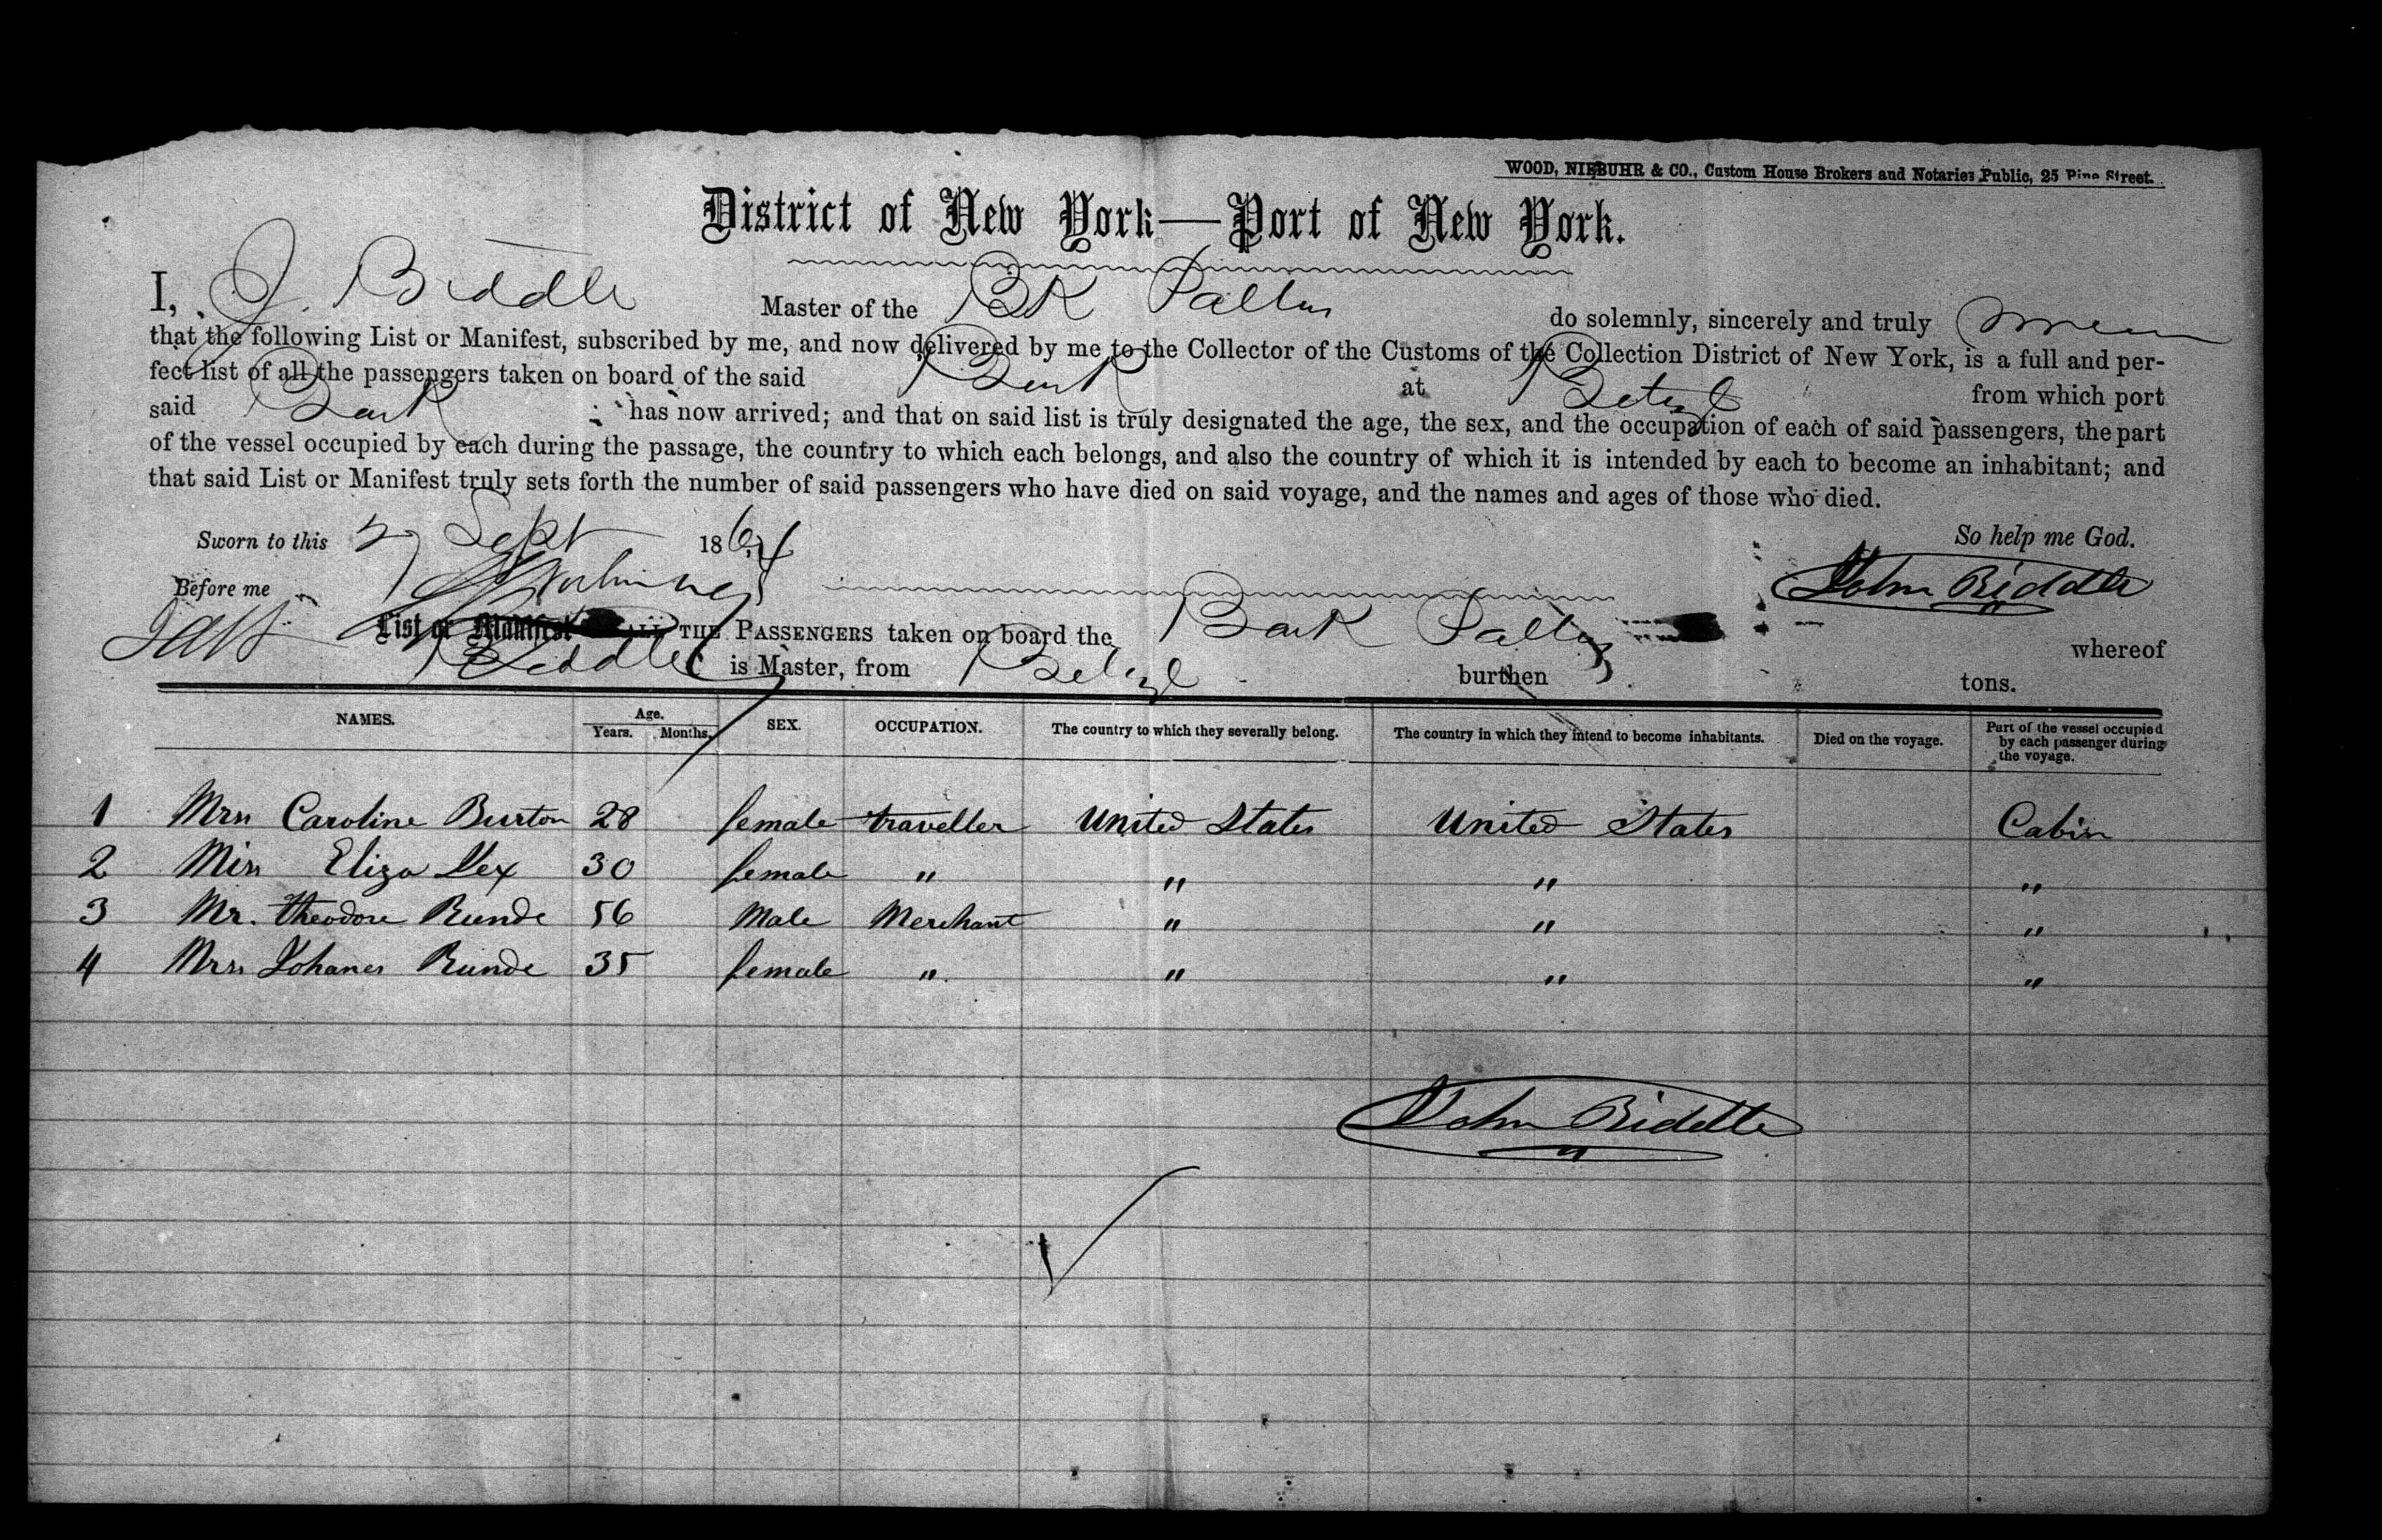 WOOD, NIEBUHR & CO., Custom House Brokers and Notaries Public, 25 Pine Street.
District of New York—Port of New York.
I, J. Biddle Master of the Bk Pallas do solemnly, sincerely and truly swear
that the following List or Manifest, subscribed by me, and now delivered by me to the Collector of the Customs of the Collection District of New York, is a full and per-
fect list of all the passengers taken on board of the said Bark at Belize from which port
said Bark has now arrived; and that on said list is truly designated the age, the sex, and the occupation of each of said passengers, the part
of the vessel occupied by each during the passage, the country to which each belongs, and also the country of which it is intended by each to become an inhabitant; and
that said List or Manifest truly sets forth the number of said passengers who have died on said voyage, and the names and ages of those who died.
Sworn to this Sept 1864 So help me God.
Before me John Biddle
List or Manifest ALL THE PASSENGERS taken on board the Bark Pallas whereof
Biddle is Master, from Belize burthen tons.
NAMES. Age. Years. Months. SEX. OCCUPATION. The country to which they severally belong. The country in which they intend to become inhabitants. Died on the voyage. Part of the vessel occupied by each passenger during the voyage.
1 Mrs Caroline Burton 28 female traveller United States United States Cabin
2 Miss Eliza Lex 30 female " " " "
3 Mr. theodore Runde 56 Male Merchant " " "
4 Mrs Johanes Runde 35 female " " " "
John Biddle